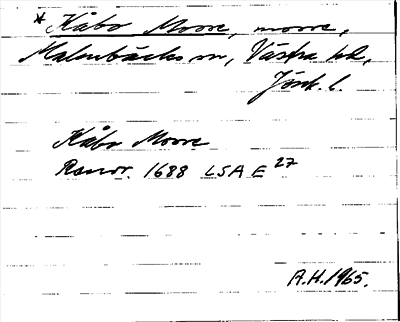 *Kåbo Mosse, mosse,
Malmbäcks sn, Västra hd,
Jönk. l.
Kåbo Mosse
Ransr. 1688 LSA E 27
R.H. 1965.